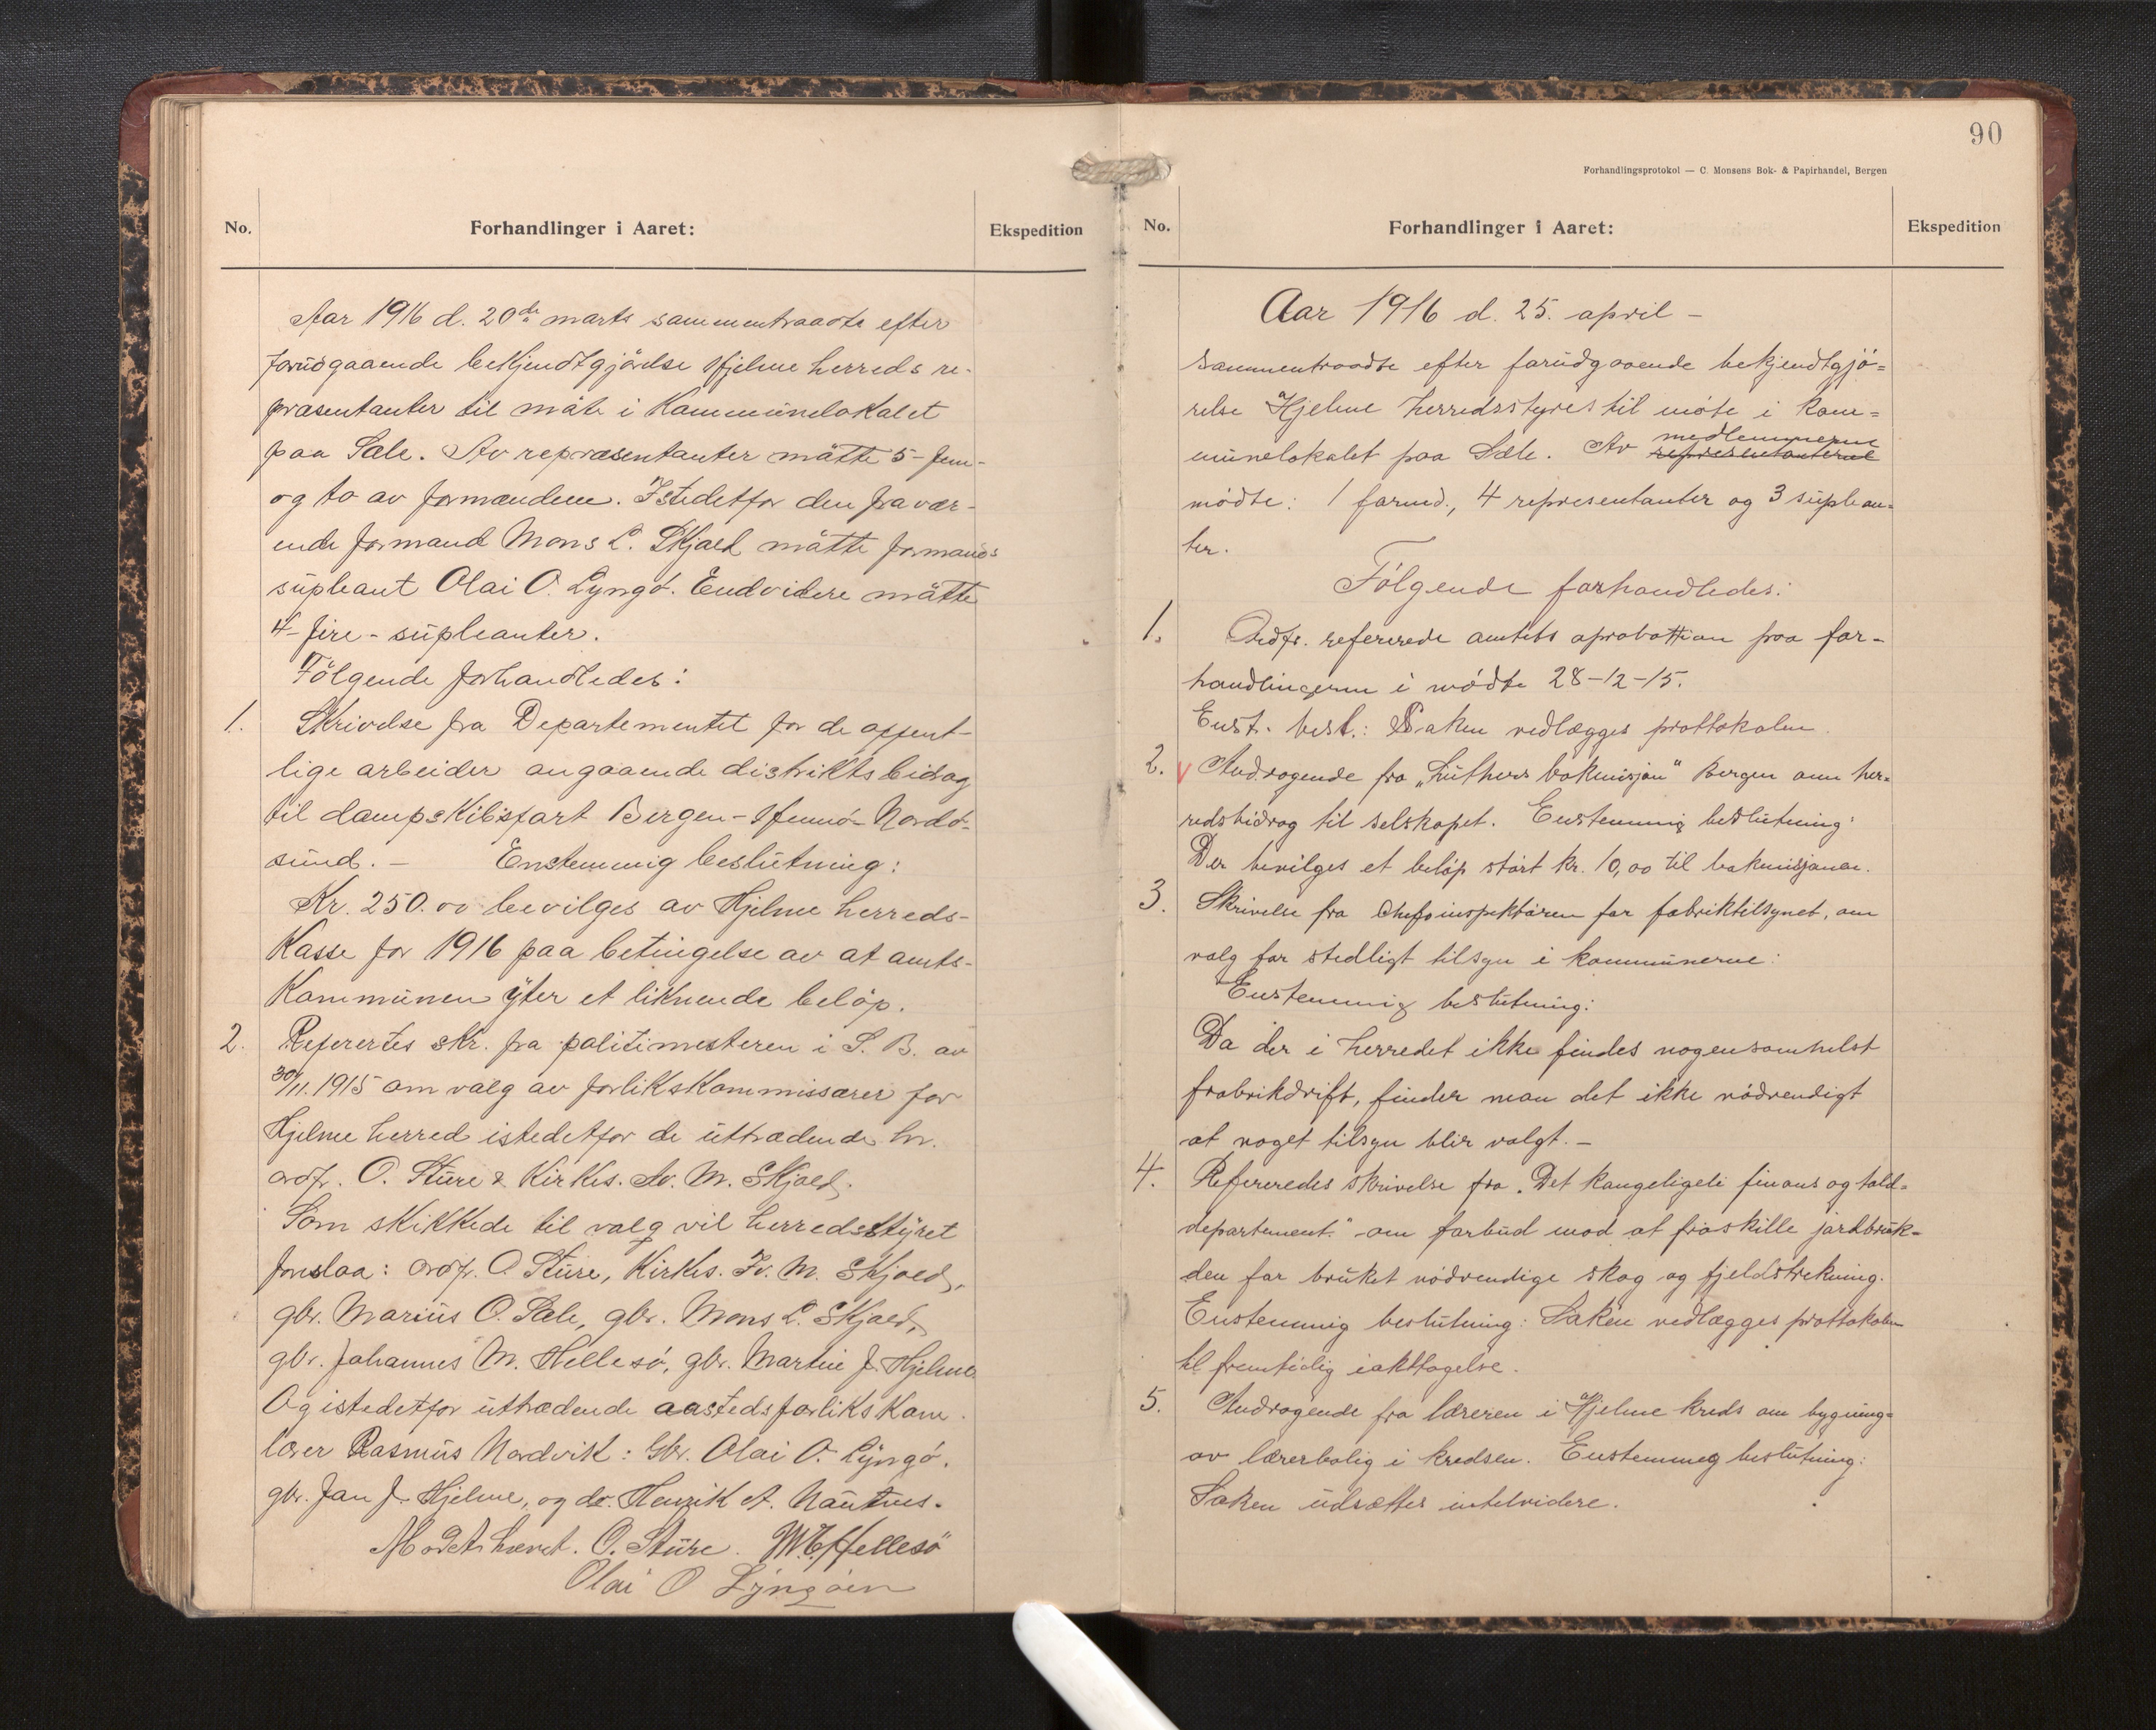 No.
Forhandlinger i Aaret:
Ekspedition
Aar 1916 d. 20de marts sammentraadte efter
forudgaaende bekjendtgjörelse Hjelme herreds re-
præsentanter til möte i Kommunelokalet
paa Sæle. Av repræsentanter mötte 5- fem-
og to av formændene. Istedetfor den fravær-
ende formand Mons L. Skjold mötte formands
supleant Olai O. Lyngö. Endvidere mötte
4- fire - supleanter.
Fölgende forhandledes:
1. Skrivelse fra Departementet for de offent-
lige arbeider angaaende distriktsbidrag
til dampskibsfart Bergen - Hernö - Nordö-
sund. - Enstemmig beslutning:
Kr. 250.00 bevilges av Hjelme herreds-
Kasse for 1916 paa betingelse av at amts-
Kommunen yter et liknende belöp.
2. Referertes skr. fra politimesteren i S. B. av
30/11. 1915 om valg av forlikskommissærer for
Hjelme herred istedetfor de uttrædende hr.
ordf. O. Sture & Kirkes. Iv. M. Skjold.
Som skikkede til valg vil herredsstyret
foreslaa: ordf. O. Sture, Kirkes. Iv. M. Skjold,
gbr. Marius O. Sæle, gbr. Mons L. Skjold,
gbr. Johannes M. Hellesö, gbr. Martin J. Hjelme.
Og istedetfor uttrædende aastedsforlikskom.
lærer Rasmus Nordvik: Gbr. Olai O. Lyngö.
gbr. Jan J. Hjelme, og do. Henrik A. Nautnes.
Mödet hævet. O. Sture. M. E. Hellesö
Olai O Lyngöen
90
Forhandlingsprotokol — C. Monsens Bok- & Papirhandel, Bergen
No.
Forhandlinger i Aaret:
Ekspedition
Aar 1916 d. 25. april -
sammentraadte efter forudgaaende bekjendtgjö=
relse Hjelme herredsstyres til möte i kom=
munelokalet paa Sæle. Av representanterne medlemmerne
mödte: 1 formd., 4 representanter og 3 suplean=
ter.
Fölgende forhandledes:
1. Ordfr. refererede amtets aprobattion paa for-
handlingerne i mödte 28-12-15.
Enst. besl.: Saken vedlægges prottokolen.
2. Andragende fra „Luthers bokmisjon" Bergen om her=
redsbidrag til selskapet. Enstemmig beslutning:
Der bevilges et belöp stort kr. 10,00 til bokmisjonen.
3. Skrivelse fra Chefsinspektören for fabriktilsynet, om
valg for stedligt tilsyn i kommunerne:
Enstemmig beslutning:
Da der i herredet ikke findes nogensomhelst
frabrikdrift, finder man det ikke nödvendigt
at noget tilsyn blir valgt. -
4. Refereredes skrivelse fra „Det kongeligeli finans og told=
departement." om forbud mod at fraskille jordbruk=
den for bruket nödvendige skog og fjeldstrekning.
Enstemmig beslutning: Saken vedlægges prottokolen
til fremtidig iakttagelse.
5. Andragende fra læreren i Hjelme kreds om bygning=
av lærerbolig i kredsen. Enstemmeg beslutning:
Saken udsættes intelvidere.